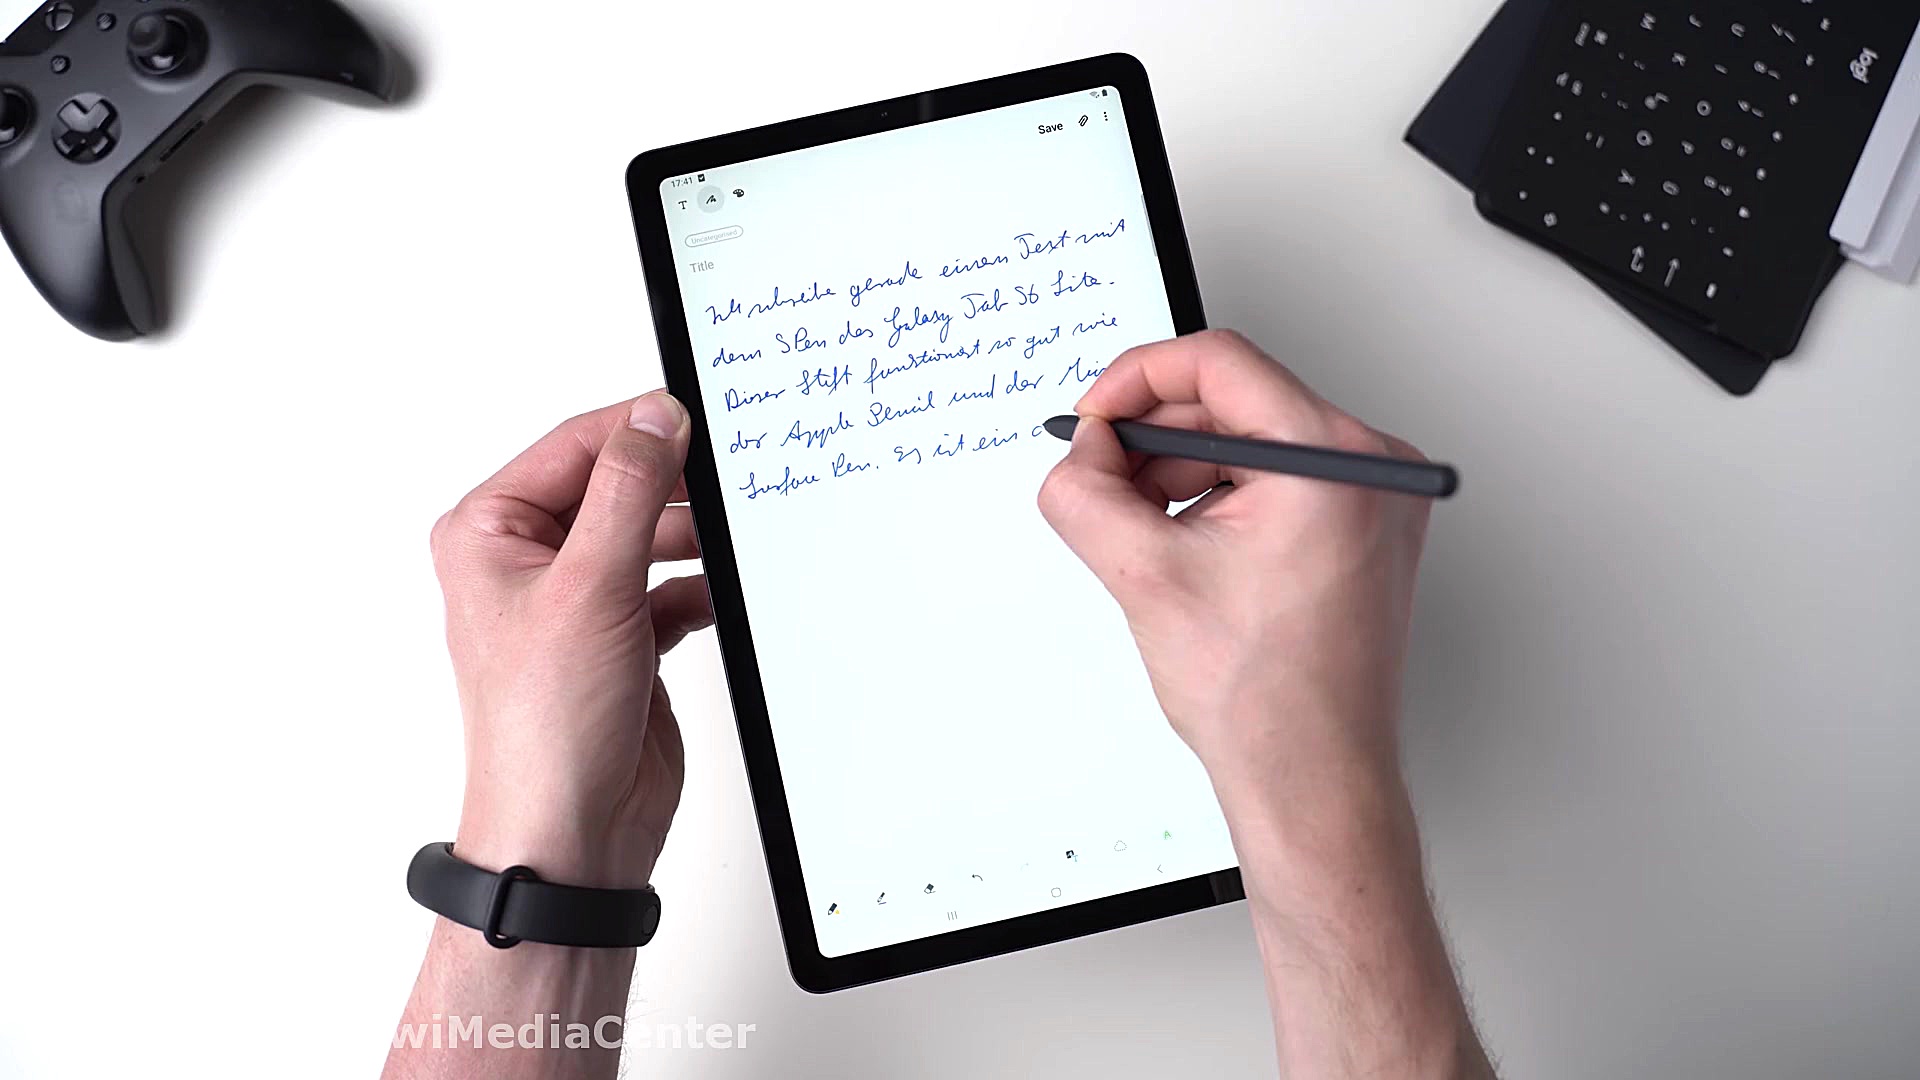 17:41
Save
Uncategorised
Title
Ich schreibe gerade einen Text mit
dem SPen des Galaxy Tab S6 Lite.
Dieser Stift funktioniert so gut wie
der Apple Pencil und der
Surface Pen. Es ist ein
logi
wiMediaCenter